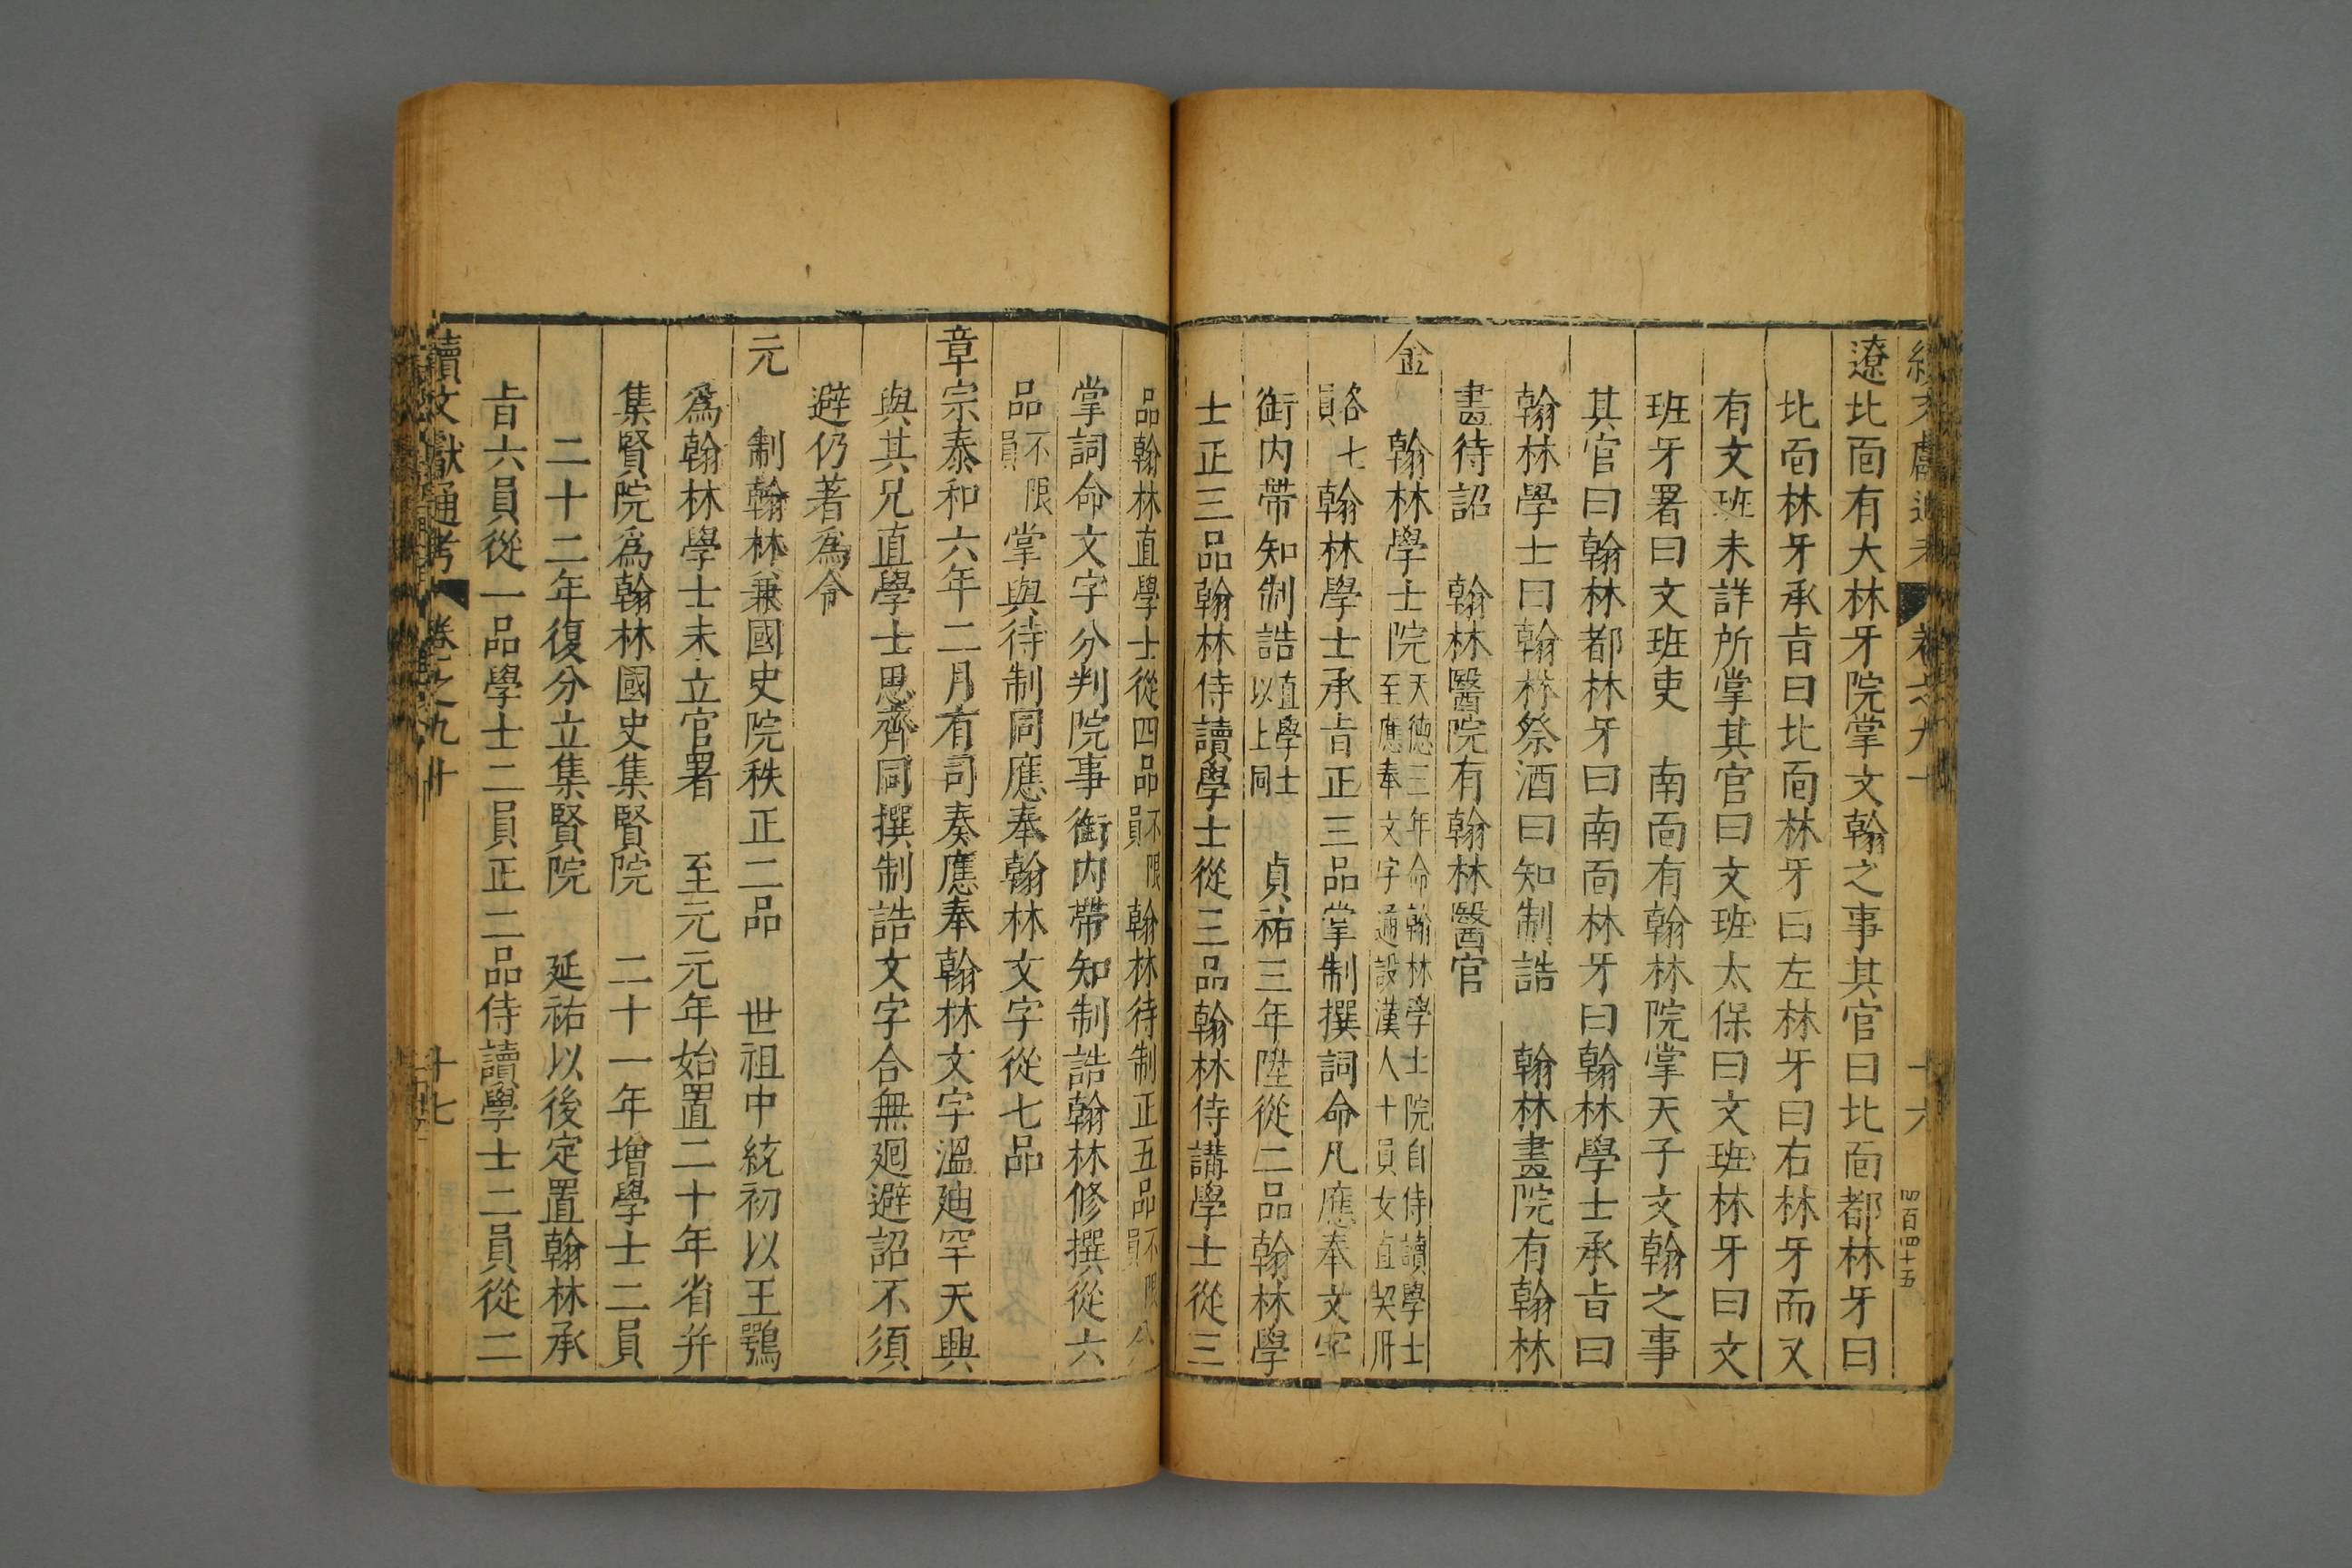 遼北面有大林牙院掌文翰之事其官曰北面都林牙曰
北面林牙承旨曰北面林牙曰左林牙曰右林牙而又
有文班未詳所掌其官曰文班太保曰文班林牙曰文
班牙署曰文班吏　南面有翰林院掌天子文翰之事
其官曰翰林都林牙曰南面林牙曰翰林學士承旨曰
翰林學士曰翰林祭酒曰知制誥　翰林畫院有翰林
畫待詔　翰林醫院有翰林醫官
金　翰林學士院天德三年命翰林學士院自侍讀學士
至應奉文字通設漢人十員女直契丹
各七員翰林學士承旨正三品掌制撰詞命凡應奉文字
銜內帶知制誥直學士以上同　貞祐三年陞從二品翰林學
士正三品翰林侍讀學士從三品翰林侍講學士從三
品翰林直學士從四品不限員翰林待制正五品不限員分
掌詞命文字分判院事銜內帶知制誥翰林修撰從六
品不限員掌與待制同應奉翰林文字從七品
章宗泰和六年二月有司奏應奉翰林文字溫廸罕天興
與其兄直學士思齊同撰制誥文字合無廻避詔不須
避仍著為令
元　制翰林兼國史院秩正二品　世祖中統初以王鶚
為翰林學士未立官署　至元元年始置二十年省并
集賢院為翰林國史集賢院　二十一年增學士二員
二十二年復分立集賢院　延祐以後定置翰林承
旨六員從一品學士二員正二品侍讀學士二員從二
續文獻通考　卷之九十　十七